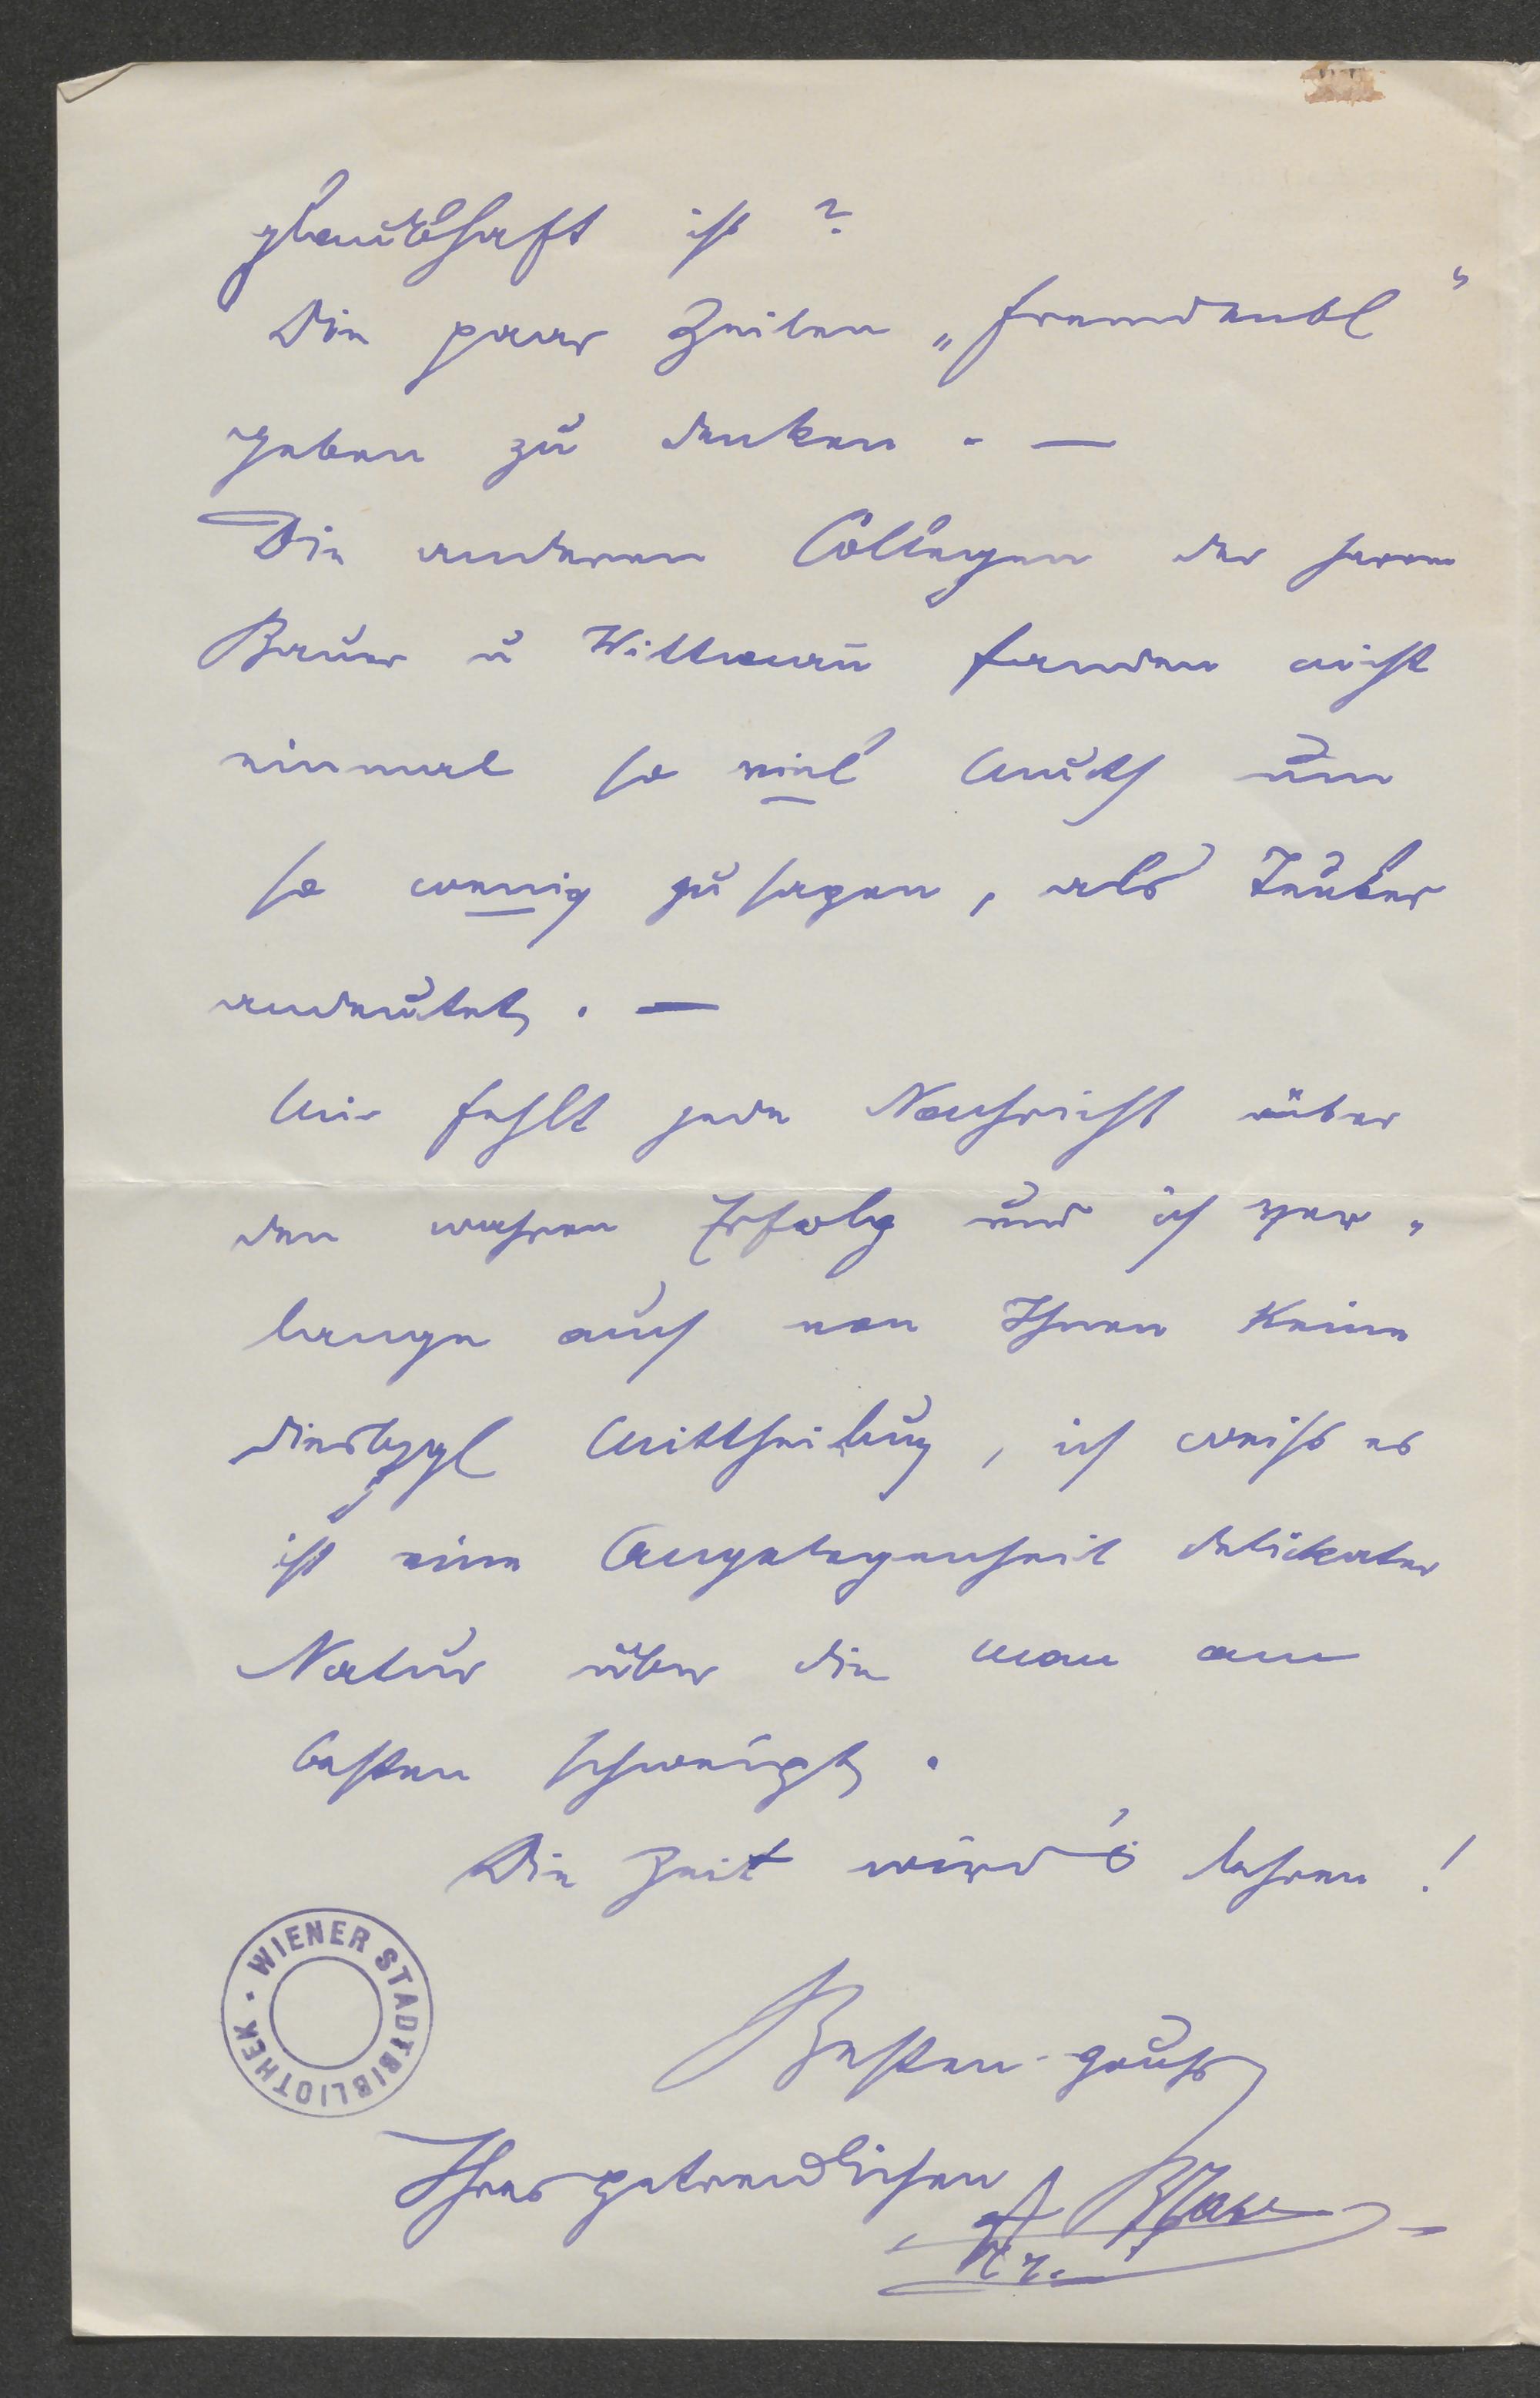 glaubhaft ist?
Die paar Zeilen „Fremdenbl"
geben zu denken. —
Die anderen Collegen der Herren
Bauer u Wittmañ fanden nicht
einmal so viel Muth um
so wenig zu sagen, als Täuber
andeutet. —
Mir fehlt jede Nachricht über
den wahren Erfolg und ich ver„
lange auch von Ihnen keine
diesbzgl Mittheilung, ich weiß es
ist eine Angelegenheit delikater
Natur über die man am
besten schweigt.
Die Zeit wird's lehren!
Besten Gruß
Ihres
WIENER STADTBIBLIOTHEK